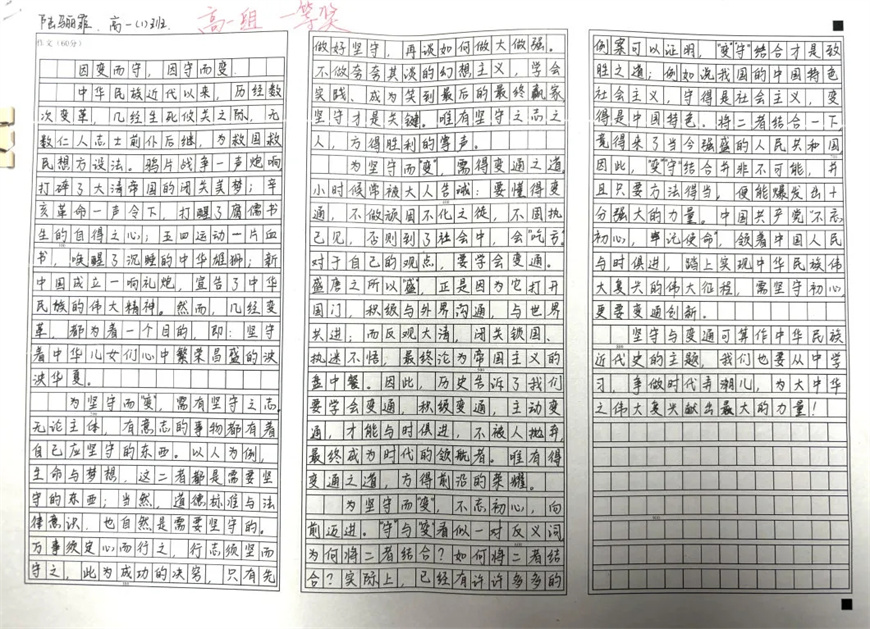 陆骊霏. 高一(1)班.
高一组 一等奖
作文(60分)
因变而守，因守而变.
中华民族近代以来，历经数
次变革，几经生死攸关之际，无
数仁人志士前仆后继，为救国救
民想方设法。鸦片战争一声炮响
打碎了大清帝国的闭关美梦；辛
亥革命一声令下，打醒了腐儒书
生的自得之心；五四运动一片血
书，唤醒了沉睡的中华雄狮；新
中国成立一响礼炮，宣告了中华
民族的伟大精神。然而，几经变
革，都为着一个目的，即：坚守
着中华儿女们心中繁荣昌盛的泱
泱华夏。
为坚守而"变"，需有坚守之志。
无论主体，有意志的事物都有着
自己应坚守的东西。以人为例，
生命与梦想，这二者都是需要坚
守的东西；当然，道德标准与法
律意识，也自然是需要坚守的。
万事须定心而行之，行志须坚而
守之，此为成功的决窍，只有先
做好坚守，再谈如何做大做强。
不做夸夸其谈的幻想主义，学会
实践、成为笑到最后的最终赢家，
坚守才是关键。唯有坚守之志之
人，方得胜利的掌声。
为坚守而"变"，需得变通之道。
小时候常被大人告诫：要懂得变
通，不做顽固不化之徒，不固执
己见，否则到了社会中，会"吃亏"。
对于自己的观点，要学会变通。
盛唐之所以"盛"，正是因为它打开
国门，积极与外界沟通，与世界
共进；而反观大清，闭关锁国、
执迷不悟，最终沦为帝国主义的
盘中餐。因此，历史告诉了我们
要学会变通，积极变通，主动变
通，才能与时俱进，不被人抛弃，
最终成为时代的领航者。唯有得
变通之道，方得前沿的荣耀。
为坚守而"变"，不忘初心，向
前迈进。"守"与"变"看似一对反义词，
为何将二者结合？如何将二者结
合？实际上，已经有许许多多的
例案可以证明，"变""守"结合才是致
胜之道；例如说我国的中国特色
社会主义，守得是社会主义，变
得是中国特色。将二者结合一下，
竟得来了当今强盛的人民共和国。
因此，"变""守"结合并非不可能，并
且只要方法得当，便能爆发出十
分强大的力量。中国共产党"不忘
初心，牢记使命"，领着中国人民
与时俱进，踏上实现中华民族伟
大复兴的伟大征程，需坚守初心，
更要变通创新。
坚守与变通可算作中华民族
近代史的主题，我们也要从中学
习，争做时代弄潮儿，为大中华
之伟大复兴献出最大的力量！